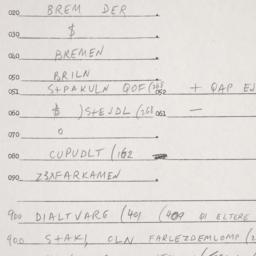 020 BREM DER
030 $
040 BREMEN
050 BRILN
051 S+PAKULN QOF (268 052 + QAP EJ
060 $ )S+EJDL (268 061 —
070 0
080 CUPUDLT (162
090 Z3NFARKAMEN
900 DIALTVARG (401 (409 DI ELTERE
900 S+AK, OLN FARLEZDEMLOMP (2